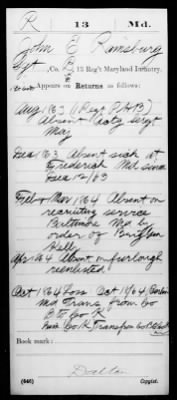 R 13 Md.
John E Remsburg
Sgt, Co. B, 13 Reg't Maryland Infantry.
Appears on Returns as follows:
Aug 1863
Absent Actg Sergt
May
Dec 1863 Absent sick at
Frederick Md since
Dec 12/63
Feby & Mar 1864 Absent on
recruiting service
Baltimore Md by
order of
Apr 1864 Absent on furlough
reenlisted
Oct 1864 Loss Oct 18/64
Md Trans from Co
B to Co K
Gain Co K Transf from Co B
Book mark:
(546) Copyist.